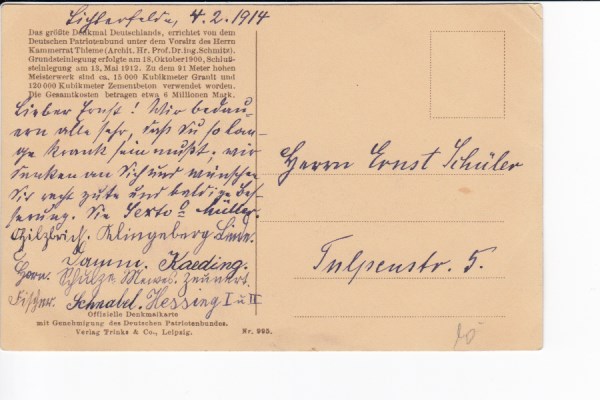 Lichterfelde, 4.2.1914
Das größte Denkmal Deutschlands, errichtet von dem
Deutschen Patriotenbund unter dem Vorsitz des Herrn
Kammerrat Thieme (Archit. Hr. Prof. Dr. ing. Schmitz).
Grundsteinlegung erfolgte am 18. Oktober 1900, Schluß-
steinlegung am 13. Mai 1912. Zu dem 91 Meter hohen
Meisterwerk sind ca. 15 000 Kubikmeter Granit und
120 000 Kubikmeter Zementbeton verwendet worden.
Die Gesamtkosten betragen etwa 6 Millionen Mark.
Lieber Ernst! Wir bedau-
ern alle sehr, daß Du so lan-
ge krank sein mußt. Wir
denken an Dich und wünschen
Dir recht gute und baldige Bes-
serung. Die Sexta O Müller.
Klingeberg. Linde.
Damm. Kaeding.
Horn. Schulze. Mewes. Zeunert.
Fischer. Schnabel. Hessing I u II
Herrn Ernst Schüler
Tulpenstr. 5.
Offizielle Denkmalkarte
mit Genehmigung des Deutschen Patriotenbundes.
Verlag Trinks & Co., Leipzig.
Nr. 993.